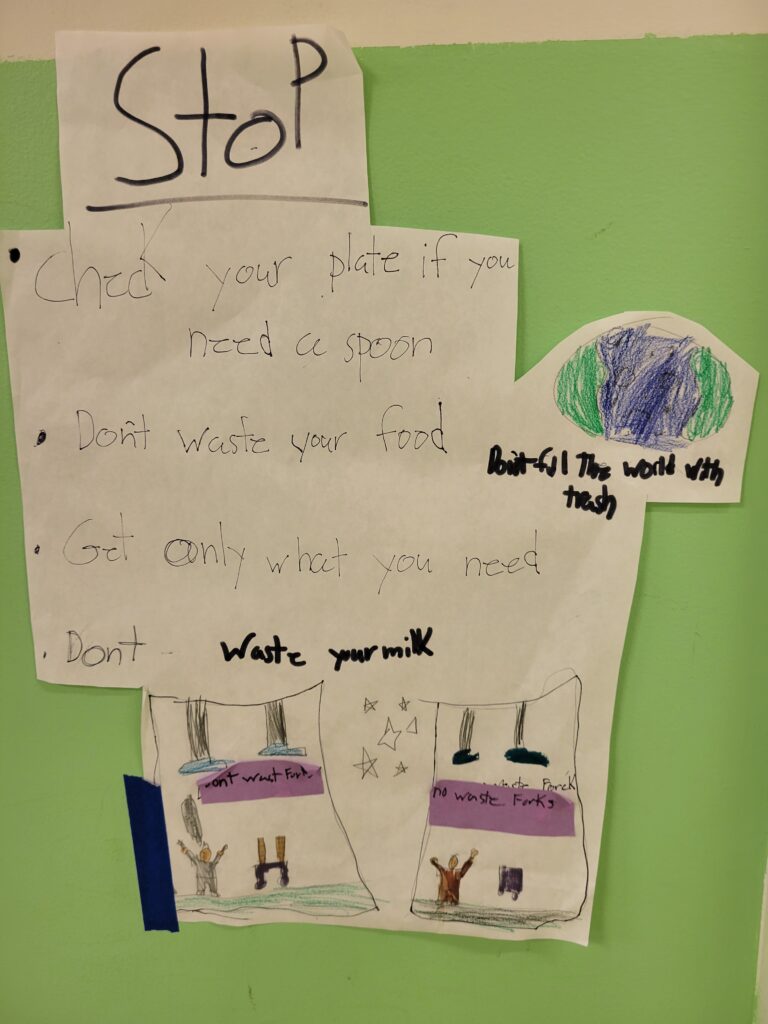 StoP
• Check your plate if you
need a spoon
• Don't waste your food
Don't fill The world with
trash
• Get Only what you need
• Dont - Waste your milk
ont wast Fork
no waste Forks